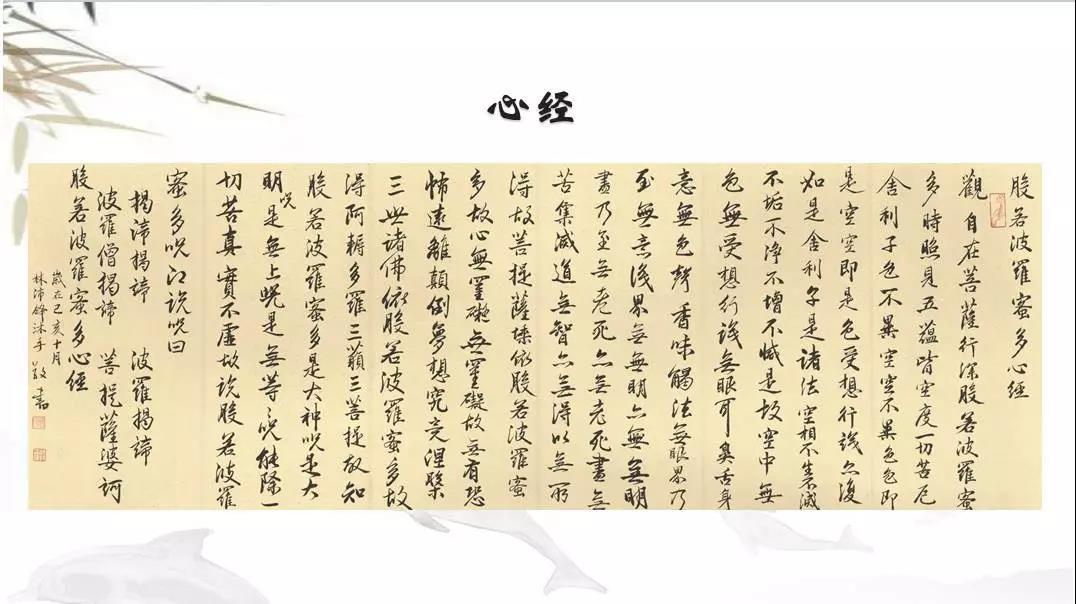 心经
般若波羅蜜多心經
觀自在菩薩行深般若波羅蜜
多時照見五蘊皆空度一切苦厄
舍利子色不異空空不異色色即
是空空即是色受想行識亦復
如是舍利子是諸法空相不生不滅
不垢不淨不增不減是故空中無
色無受想行識無眼耳鼻舌身
意無色聲香味觸法無眼界乃
至無意識界無無明亦無無明
盡乃至无老死亦無老死盡無
苦集滅道無智亦無得以無所
得故菩提薩埵依般若波羅蜜
多故心無罣礙無罣礙故無有恐
怖遠離顛倒夢想究竟涅槃
三世諸佛依般若波羅蜜多故
得阿耨多羅三藐三菩提故知
般若波羅蜜多是大神咒是大
明咒是無上咒是無等等咒能除一
切苦真實不虛故說般若波羅
蜜多咒即說咒曰
揭諦揭諦 波羅揭諦
波羅僧揭諦 菩提薩婆訶
般若波羅蜜多心經
歲在己亥十月
林沛鋒沐手敬書